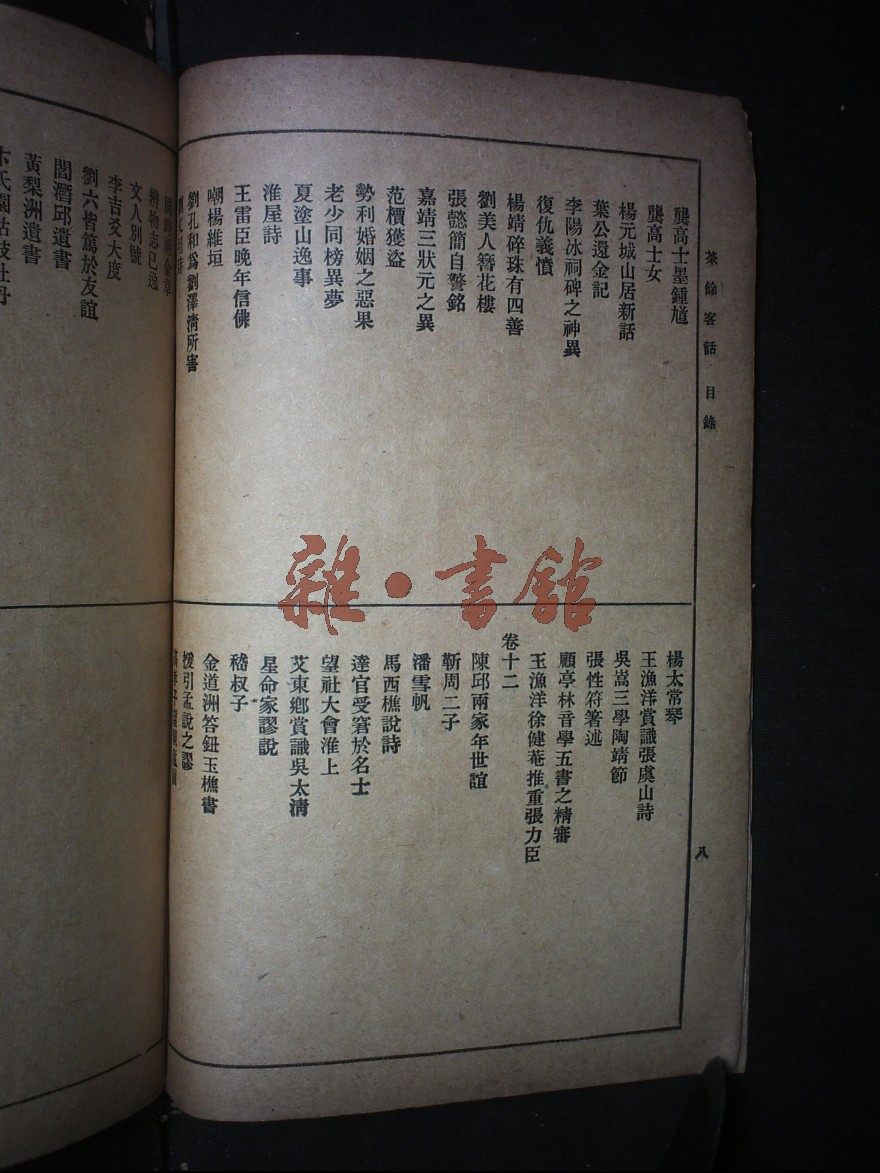 茶餘客話 目錄
八
龔高士墨鍾馗
龔高士女
楊元城山居新話
葉公還金記
李陽冰祠碑之神異
復仇義憤
楊靖碎珠有四善
劉美人簪花樓
張懿簡自警銘
嘉靖三狀元之異
范檟獲盜
勢利婚姻之惡果
老少同榜異夢
夏塗山逸事
淮屋詩
王雷臣晚年信佛
嘲楊維垣
劉孔和爲劉澤清所害
楊太常琴
王漁洋賞識張虞山詩
吳嵩三學陶靖節
張性符箸述
顧亭林音學五書之精審
王漁洋徐健菴推重張力臣
卷十二
陳邱兩家年世誼
靳周二子
潘雪帆
馬西樵說詩
達官受窘於名士
望社大會淮上
艾東鄉賞識吳太清
星命家謬說
嵇叔子
金道洲答鈕玉樵書
援引孟說之謬
辨物志已逸
文人別號
李吉爻大度
劉六皆篤於友誼
閻潛邱遺書
黃梨洲遺書
雜·書館